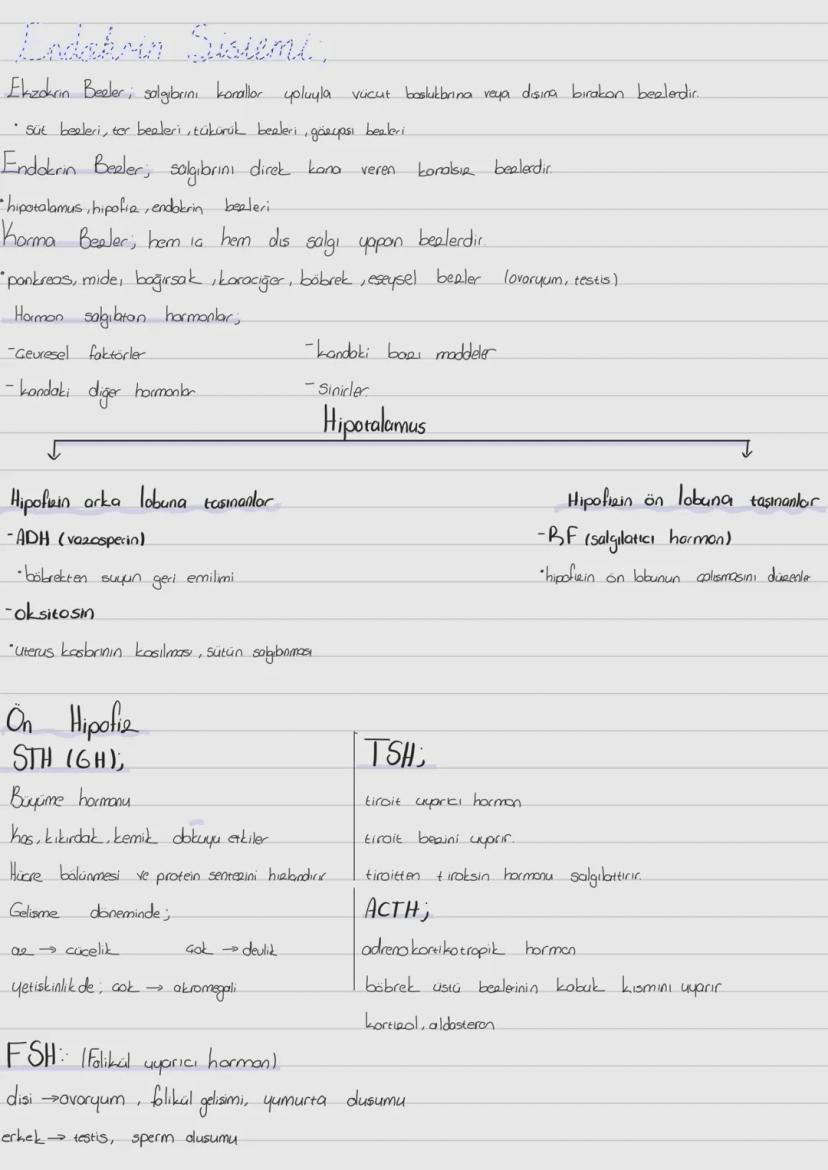 Endokrin Sistemi;
Ekzokrin Bezler; salgılarını kanallar yoluyla vücut boşluklarına veya dışına bırakan bezlerdir.
• süt bezleri, ter bezleri, tükürük bezleri, gözyaşı bezleri
Endokrin Bezler; salgılarını direk kana veren kanalsız bezlerdir.
• hipotalamus, hipofiz, endokrin bezleri
Karma Bezler; hem iç hem dış salgı yapan bezlerdir.
• pankreas, mide, bağırsak, karaciğer, böbrek, eşeysel bezler (ovaryum, testis)
Hormon salgılatan hormonlar;
- Çevresel faktörler - kandaki bazı maddeler
- kandaki diğer hormonlar - sinirler
Hipotalamus
Hipofizin arka lobuna taşınanlar Hipofizin ön lobuna taşınanlar
- ADH (vazosperin) - RF (salgılatıcı hormon)
• böbrekten suyun geri emilimi • hipofizin ön lobunun çalışmasını düzenler
- oksitosin
• uterus kaslarının kasılması, sütün salgılanması
Ön Hipofiz
STH (GH);
Büyüme hormonu
kas, kıkırdak, kemik dokuyu etkiler
Hücre bölünmesi ve protein sentezini hızlandırır
Gelişme döneminde;
az → cücelik çok → devlik
yetişkinlikde; çok → akromegali
TSH;
tiroit uyarıcı hormon
tiroit bezini uyarır.
tiroitten tiroksin hormonu salgılattırır.
ACTH;
adrenokortikotropik hormon
böbrek üstü bezlerinin kabuk kısmını uyarır
kortizol, aldosteron
FSH: (Folikül uyarıcı hormon)
dişi → ovaryum, folikül gelişimi, yumurta oluşumu
erkek → testis, sperm oluşumu